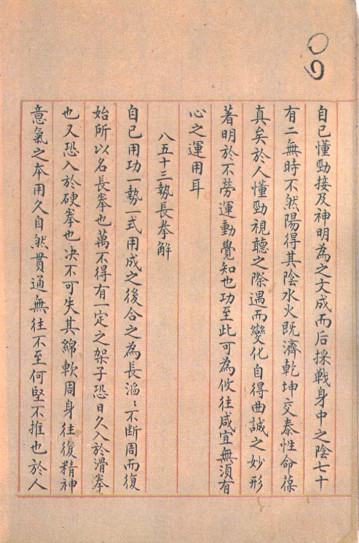 自己懂勁接及神明為之文成而后採戰身中之陰七十
有二無時不然陽得其陰水火既濟乾坤交泰性命葆
真矣於人懂勁視聽之際遇而變化自得曲誠之妙形
著明於不勞運動覺知也功至此可為攸往咸宜無須有
心之運用耳
八五十三勢長拳解
自己用功一勢一式用成之後合之為長滔滔不斷周而復
始所以名長拳也萬不得有一定之架子恐日久入於滑拳
也又恐入於硬拳也决不可失其綿軟周身往復精神
意氣之本用久自然貫通無往不至何堅不推也於人